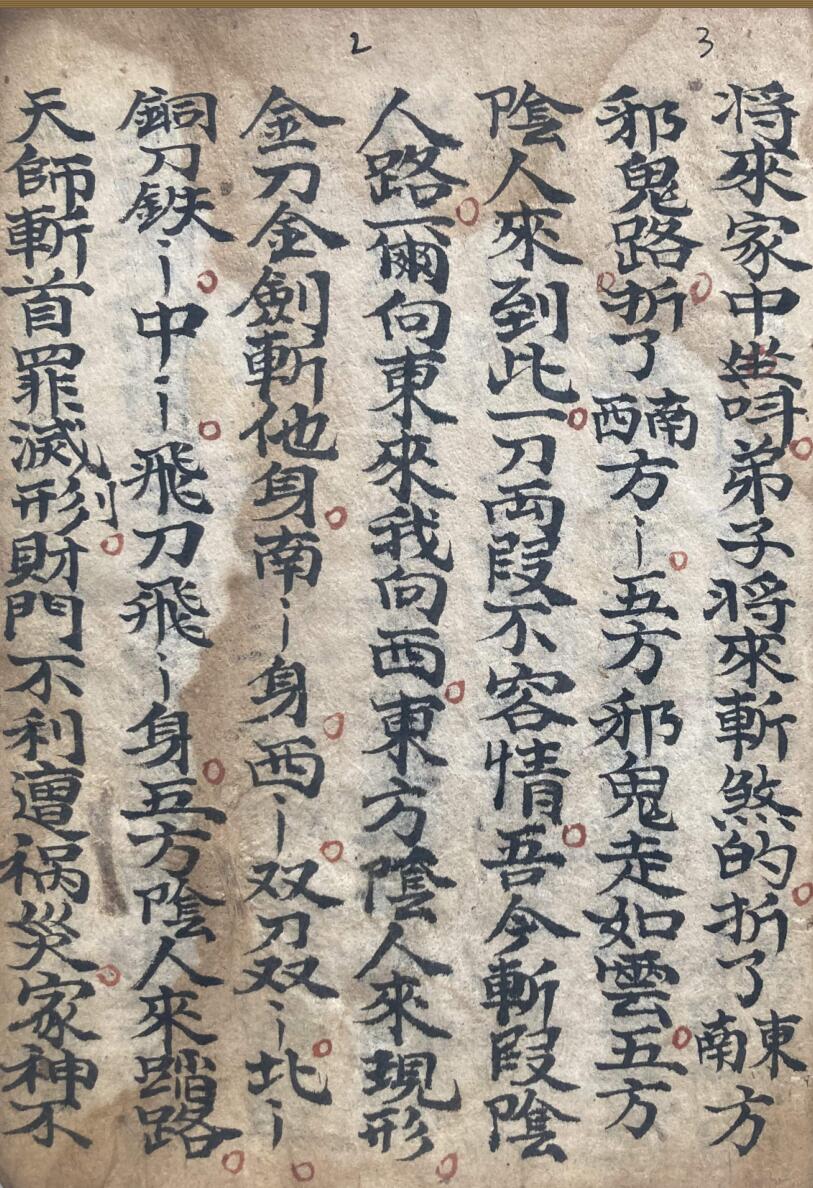 3
2
将來家中坐呌弟子将來斬煞的折了東南方
邪鬼路折了南西方〻五方邪鬼走如雲五方
陰人來到此一刀両叚不容情吾今斬叚陰
人路一爾向東來我向西東方陰人來現形
金刀金劍斬他身南〻身西〻双刀双〻北〻
銅刀鉄〻中〻飛刀飛〻身五方陰人來踏路
天師斬首罪滅形财門不利遭禍災家神不